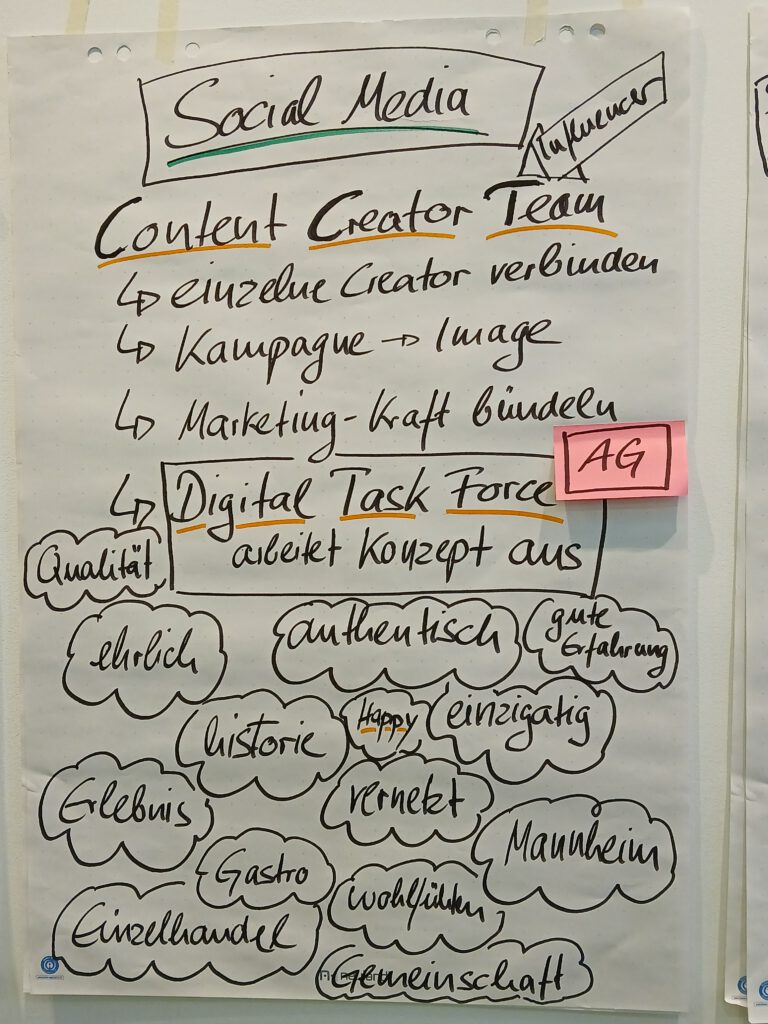 Social Media
Influencer
Content Creator Team
↳ einzelne Creator verbinden
↳ Kampagne → Image
↳ Marketing-Kraft bündeln
AG
↳ Digital Task Force
arbeitet Konzept aus
Qualität
ehrlich
authentisch
gute
Erfahrung
historie
Happy
einzigatig
Erlebnis
vernetzt
Mannheim
Gastro
wohlfühlen
Einzelhandel
Gemeinschaft